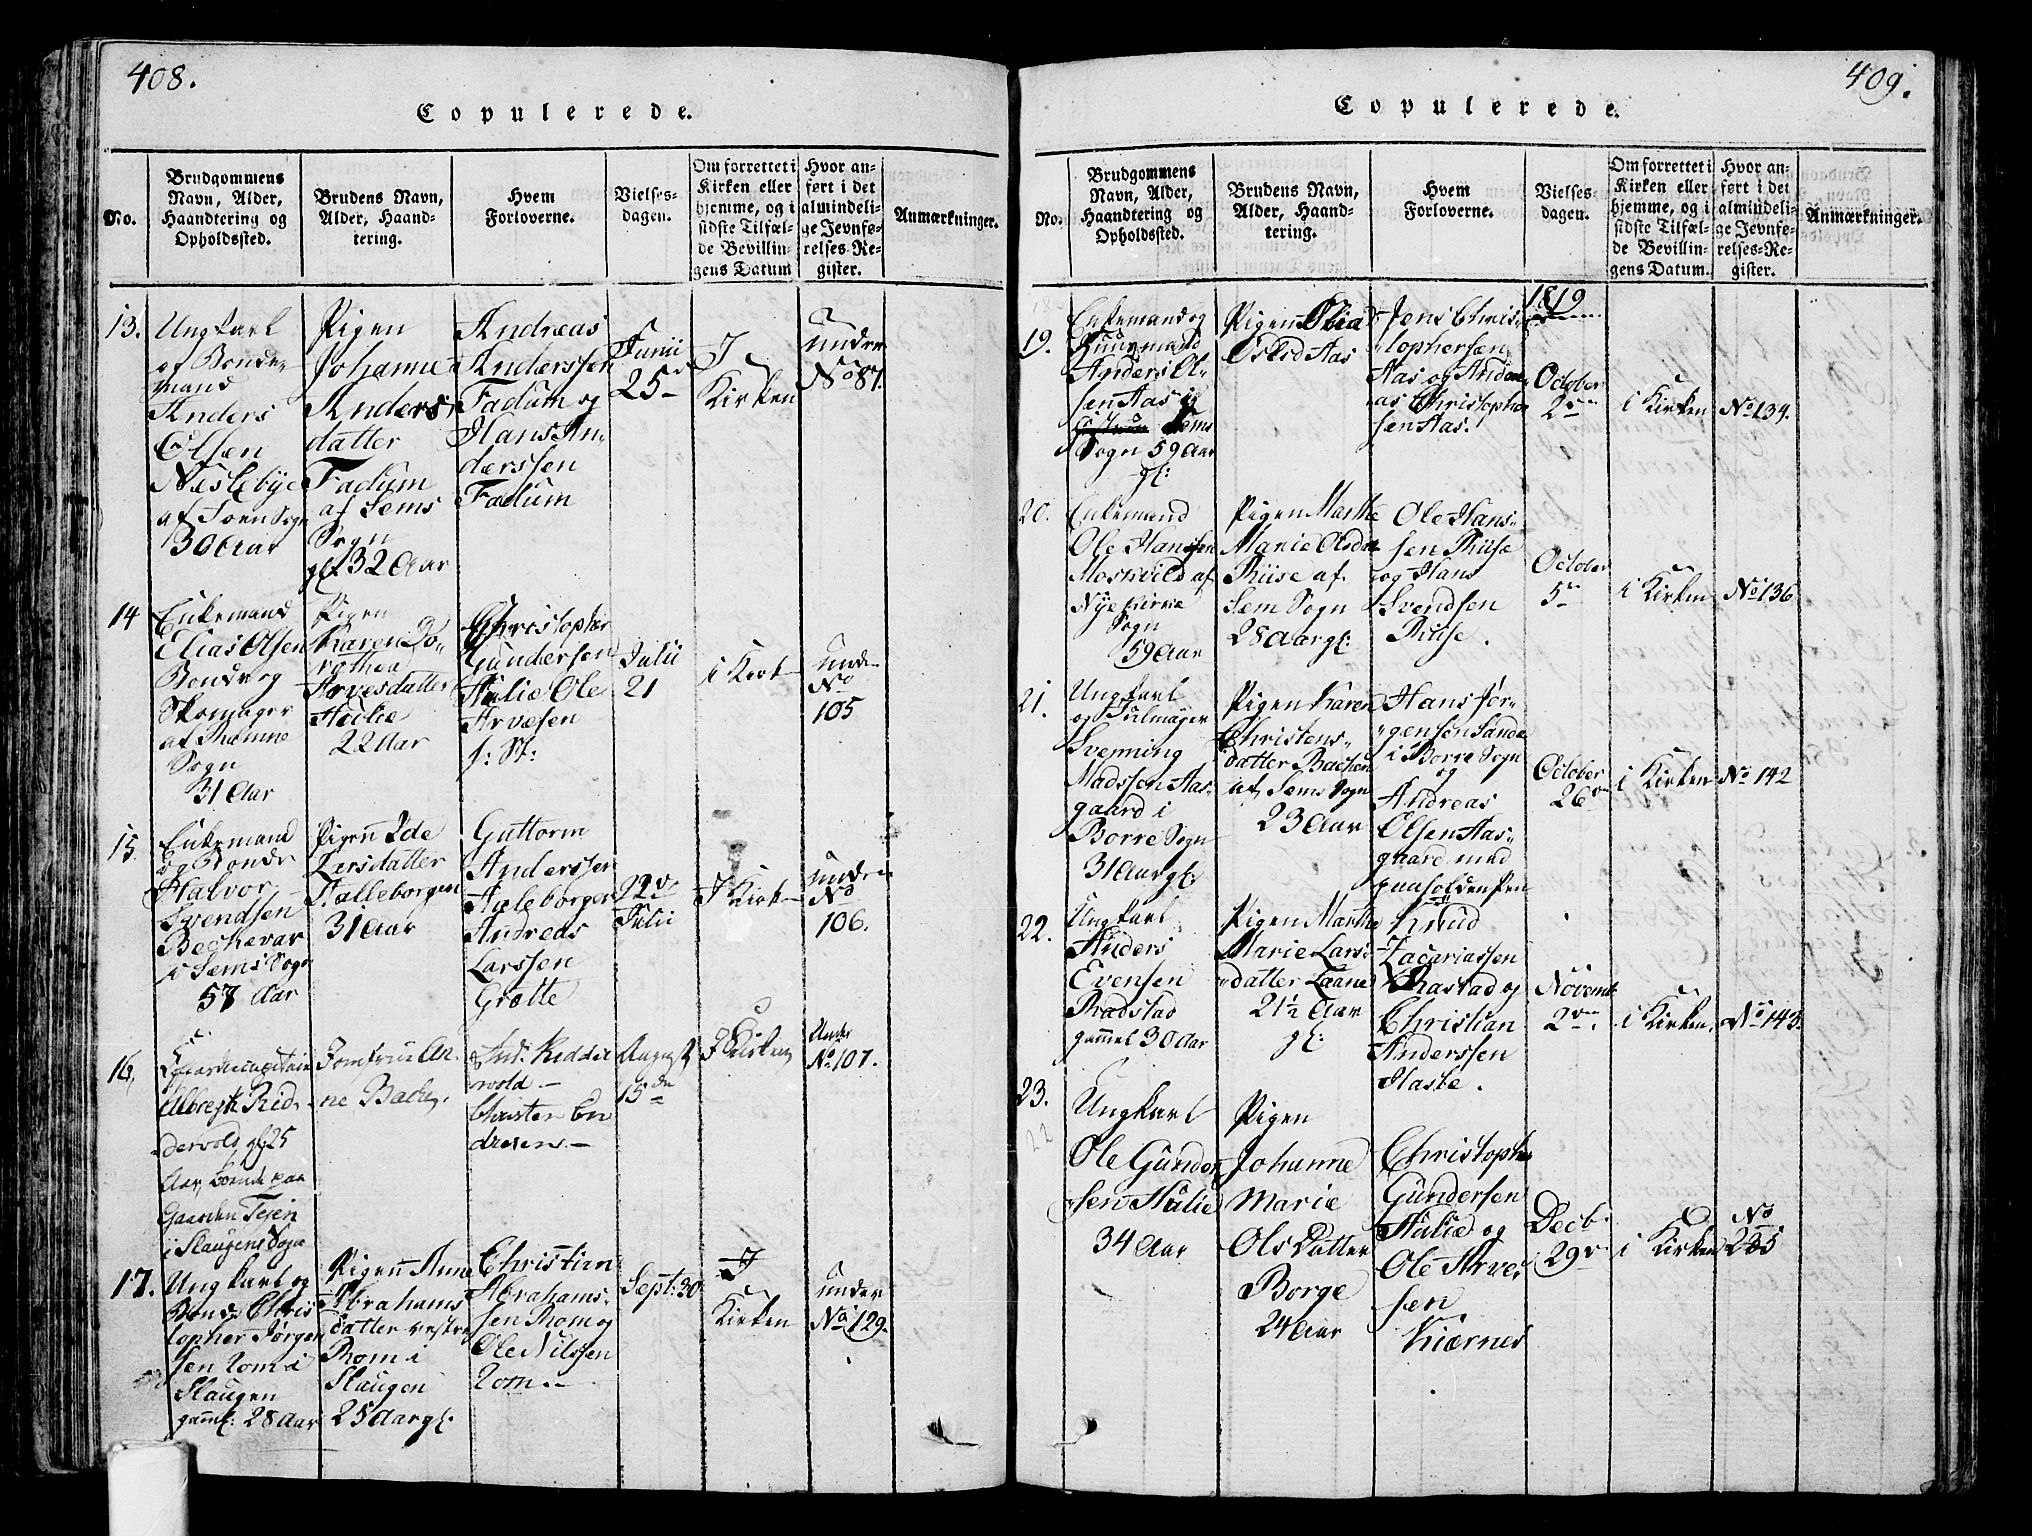 408.
Copulerede.
No.
Brudgommens Navn, Alder, Haandtering og Opholdssted.
Brudens Navn, Alder, Haandtering.
Hvem Forloverne.
Vielsesdagen.
Om forrettet i Kirken eller hjemme, og i sidste Tilfælde Bevillingens Datum
Hvor anført i det almindelige Jevnførelses-Register.
Anmærkninger.
13.
Ungkarl
og Bonde-
mand
Anders
Olsen
Næslebye
af Sæm Sogn
30 Aar
Pigen
Johanne
Anders
datter
Fadum
af Sems
Sogn
gl 32 Aar
Andreas
Anderssen
Fadum og
Hans An-
derssen
Fadum
Junii
25
I
Kirken
under
No 87.
14
Enkemand
Elias Olsen
Bonde og
Skomager
af Ramme
Sogn
31 Aar
Pigen
Karen Do-
rothea
Arvesdatter
Hulie
22 Aar
Christopher
Gundersen
Hulie Ole
Arvesen
Julii
21
i Kirk
under
No
105
15.
Enkemand
og Bonde
Halvor
Svendsen
Bechevar
i Sems Sogn
57 Aar
Pigen Ide
Larsdatter
Falleborgen
31 Aar
Guttorm
Anderssen
Andreas
Larssen
Grotte
22
Julii
I Kirk
under
No
106.
16,
Albregt Rid-
dervold gl 25
Aar, boende paa
Gaarden Tejen
i Slaugens Sogn
Jomfrue An-
ne Bache.
And. Ridder
vold.
Christen En
dresen.
August
15
I Kirken
Under
No 107.
17.
Ungkarl og
Bonde Chris
topher Jørgen
sen Rom i
Slaugen
gaml: 28 Aar
Pigen Anne
Abrahams
datter vestre
Rom i
Slaugen
25 Aar gl.
Christian
Abrahams-
sen Rom og
Ole Nilssen
Rom.
Sept: 30
I
Kirken
under
No 129.
409.
Copulerede.
No.
Brudgommens Navn, Alder, Haandtering og Opholdssted.
Brudens Navn, Alder, Haandtering.
Hvem Forloverne.
Vielsesdagen.
Om forrettet i Kirken eller hjemme, og i sidste Tilfælde Bevillingens Datum.
Hvor anført i det almindelige Jevnførelses-Register.
Anmærkninger.
1819
19.
Enkemand og
Huusmand
Anders Ol-
sen Aas i
Sems
Sogn 59 Aar
gl:
Pigen Olia
Olsd Aas
Jens Chris-
tophersen
Aas og Andre-
as Christopher
sen Aas.
October
2
i Kirken
No 134.
20.
Enkemand
Ole Hanssen
Moskvild af
Nye Kirke
Sogn
59 Aar
Pigen Marthe
Marie Olsda
Riise af
Sem Sogn
28 Aar gl:
Ole Hans-
sen Riise
og Hans
Svendsen
Riise.
October
5
i Kirken
No 136
21.
Ungkarl
Svenning
Madssen Aas-
gaard i
Borre Sogn
31 Aar gl:
Pigen Karen
Christens-
datter Bachen
af Sems Sogn
23 Aar
Hans Jør-
gensen Sande
i Borre Sogn
og
Andreas
Olsen Aas-
gaard
October
26
i Kirken
No 142
22.
Ungkarl
Anders
Evensen
Rastad
gammel 30 Aar
Pigen Marthe
Marie Lars-
datter Laane
21½ Aar
gl:
Knud
Zacariassen
Rastad og
Christian
Anderssen
Haslie.
Novemb
2
i Kirken
No 143.
23.
22
Ungkarl
Ole Gunder
sen Hulie
34 Aar
Pigen
Johanne
Marie
Ols Datter
Borge
24 Aar
Christopher
Gundersen
Hulie og
Ole Arve
sen
Kiærnes
Decb.
29
i Kirken
No
235